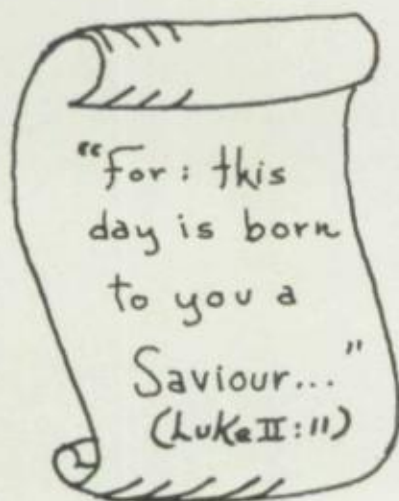 "For: this
day is born
to you a
Saviour..."
(Luke II:11)